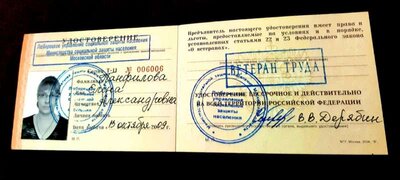 УДОСТОВЕРЕНИЕ
Люберецкое управление социальной защиты населения
Министерства социальной защиты населения
Московской области
№ 006006
Фамилия Панфилова
Елена
Александровна
Личная подпись
Дата выдачи 13 октября 2009 г.
Предъявитель настоящего удостоверения имеет права и
льготы, предоставляемые на условиях и в порядке,
установленных статьями 22 и 23 Федерального закона
«О ветеранах».
ВЕТЕРАН ТРУДА
УДОСТОВЕРЕНИЕ БЕССРОЧНОЕ И ДЕЙСТВИТЕЛЬНО
НА ВСЕЙ ТЕРРИТОРИИ РОССИЙСКОЙ ФЕДЕРАЦИИ
В.В. Дерябин